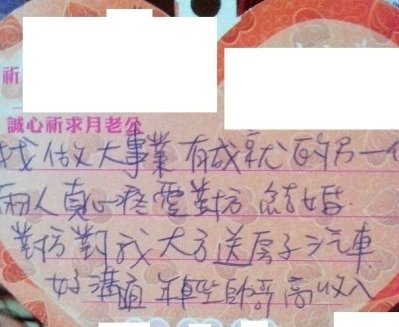 祈
誠心祈求月老公
找做大事業有成就的另一
兩人真心疼愛對方 結婚.
對方對我大方送房子汽車
好溝通 年輕帥哥高收入